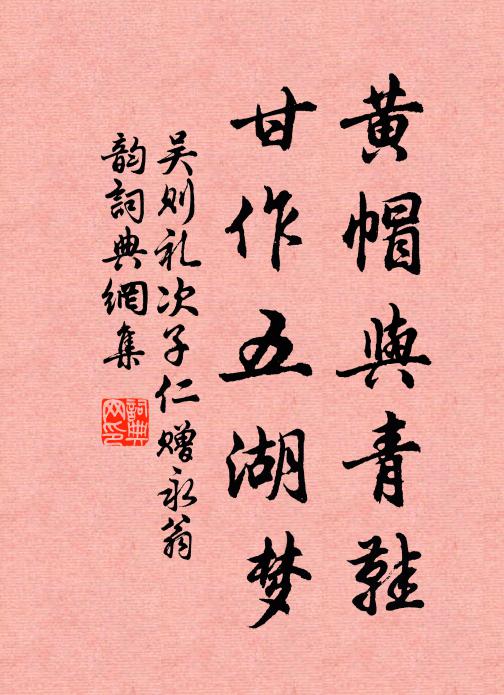 黄帽與青鞋
甘作五湖梦
吴则礼次子仁赠永翁
韵詞典網集
詞典网印